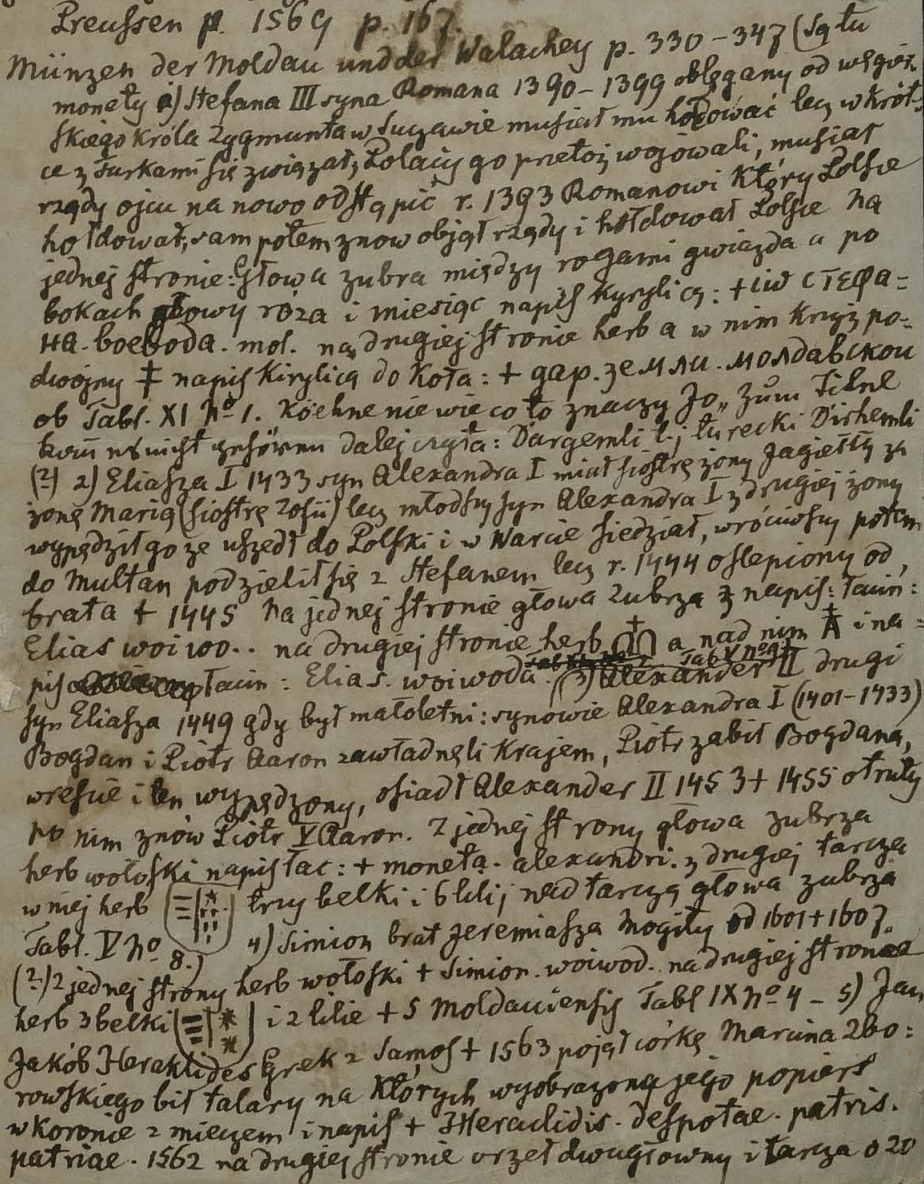 Preussen p. 1569 p. 167.
Münzen der Moldau und der Walachey p. 330-347 (są tu
monety 1) Stefana III syna Romana 1390-1399 oblęgany od węgier=
skiego króla Zygmunta w Suczawie musiał mu hołdować lecz wkrót=
ce z Turkami się związał, Polacy go przetoż wojowali, musiał
rządy ojcu na nowo odstąpić r. 1393 Romanowi który Polsce
hołdował, sam potem znow objął rządy i hołdował Polsce Na
jednej stronie: głowa zubra między rogami gwiazda a po
bokach głowy róża i miesiąc napis Kyrylicą: + ıѡ стефа=
на. воевода. mol. na drugiej stronie herb a w nim krzyż po=
dwójny ‡ napis Kirylicą do koła: + gap. земли. молдавскои
ob Tabl. XI No 1. Köehne nie wie co to znaczy Jo,, zum Titel
dalej czyta: Dargemli t. j. turecki Dirhemli
(?) 2) Eliasza I 1433 syn Alexandra I miał siostrę żony Jagiełły za
żonę Marią (siostrę Zofii) lecz młodszy syn Alexandra I z drugiej żony
wypędził go ze uszedł do Polski i w Warcie siedział, wróciwszy potem
do Multan podzielił się z Stefanem lecz r. 1444 oslepiony od
brata + 1445 Na jednej stronie głowa Zubrza z napis: łacin:
Elias woiwo.. na drugiej stronie herb a nad nim i na=
pis łacin: Elias. woiwoda. Tab V No 9. (3) Alexander II drugi
syn Eliasza 1449 gdy był małoletni: synowie Alexandra I (1401-1433)
Bogdan i Piotr Aaron zawładnęli krajem, Piotr zabił Bogdana,
wreszcie i ten wypędzony, osiadł Alexander II 1453 + 1455 otruty
po nim znów Piotr V Aaron. Z jednej strony głowa zubrza
herb wołoski napis łac: + moneta. alexandri. z drugiej tarcza
w niej herb trzy belki i 6 lilij nad tarczą głowa zubrza
Tabl. V No 8.) 4) Simion brat Jeremiasza Mogiły od 1601 + 1607.
(?) z jednej strony herb wołoski + Simion. woiwod.. na drugiej stronie
herb 3 belki i 2 lilie + S Moldaviensis Tabl IX No 4 - 5) Jan
Jakób Heraklides Grek z Samos + 1563 pojął córkę Marcina Zbo=
rowskiego bił talary na których wyobrażona jego popiers
w koronie z mieczem i napis + Heraclidis. despotae. patris.
patriae. 1562 na drugiej stronie orzeł dwugłowny i tarcza o 20